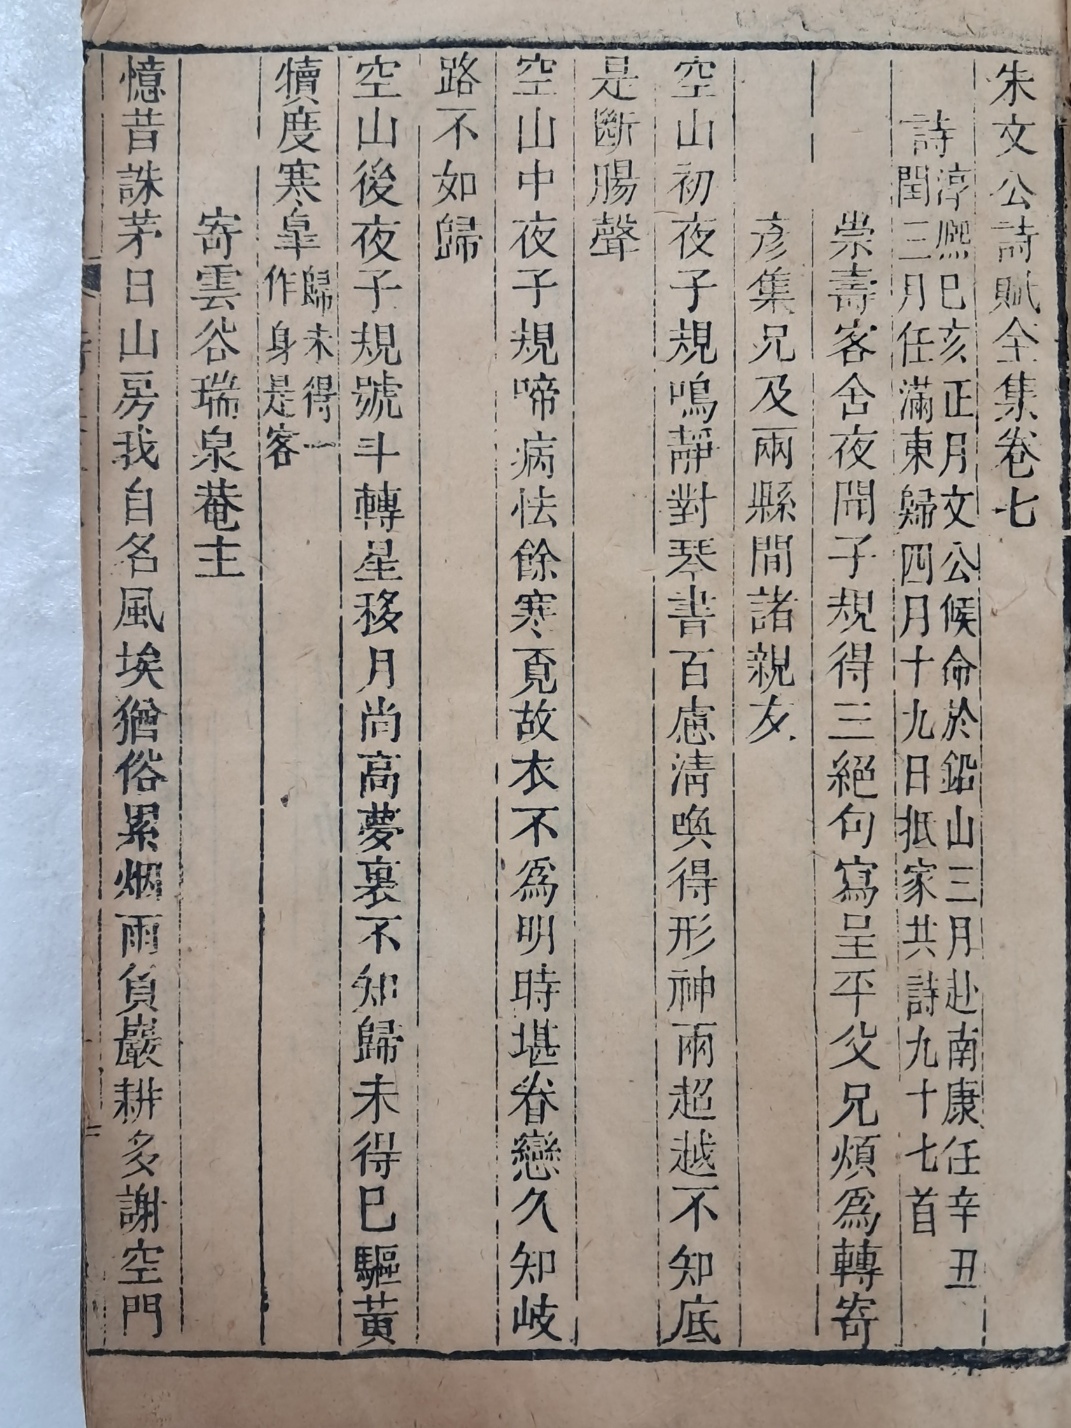 朱文公詩賦全集卷七
詩淳熈巳亥正月文公候命於鉛山三月赴南康任辛丑
閏三月任滿東歸四月十九日抵家共詩九十七首
崇壽客舍夜聞子規得三絕句寫呈平父兄煩爲轉寄
彥集兄及兩縣間諸親友
空山初夜子規鳴靜對琴書百慮淸喚得形神兩超越不知底
是斷腸聲
空山中夜子規啼病怯餘寒覔故衣不爲明時堪眷戀久知岐
路不如歸
空山後夜子規號斗轉星移月尚高夢裏不知歸未得巳驅黃
犢度寒皐歸未得一作身是客
寄雲谷瑞泉菴主
憶昔誅茅日山房我自名風埃猶俗累烟雨負巖耕多謝空門